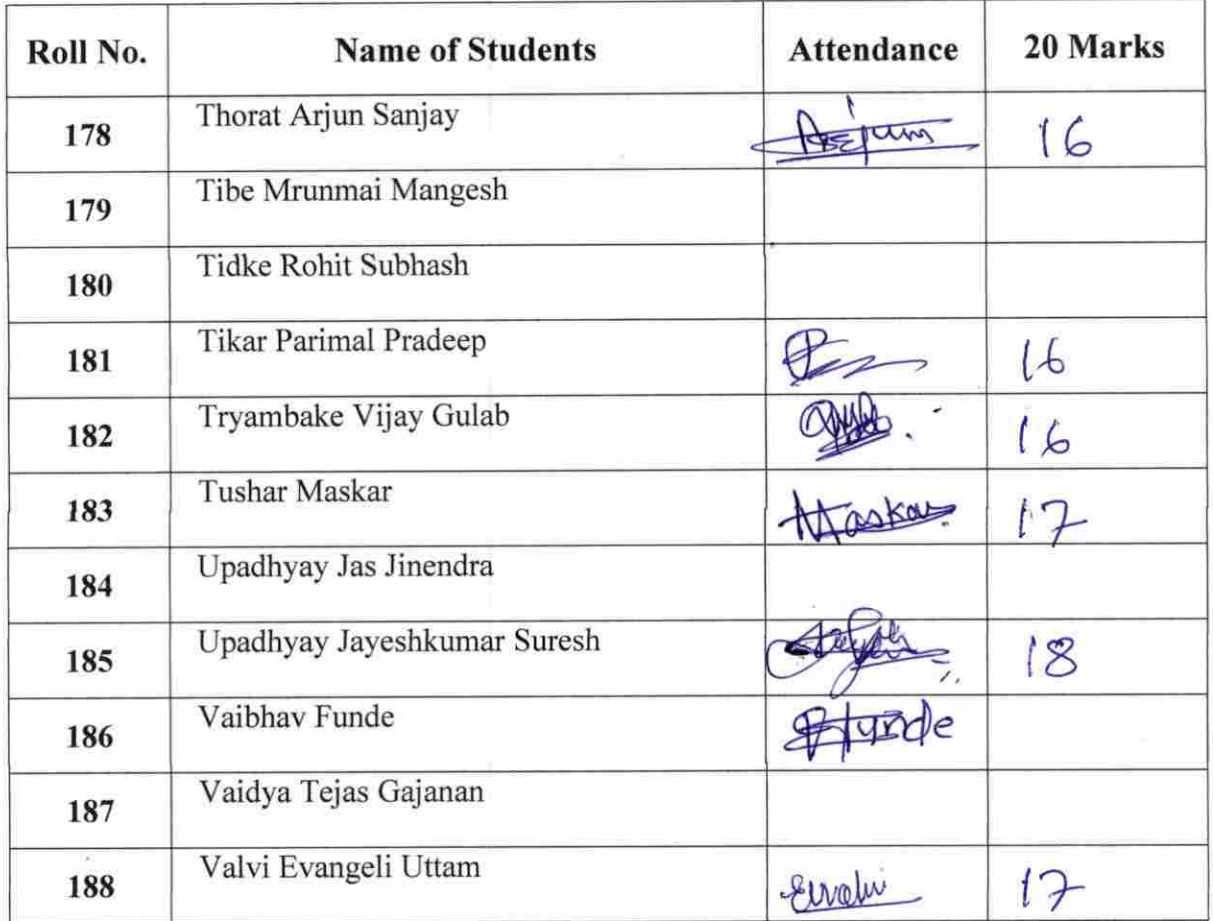 Roll No. Name of Students Attendance 20 Marks
178 Thorat Arjun Sanjay Arjun 16
179 Tibe Mrunmai Mangesh
180 Tidke Rohit Subhash
181 Tikar Parimal Pradeep 16
182 Tryambake Vijay Gulab 16
183 Tushar Maskar Maskar 17
184 Upadhyay Jas Jinendra
185 Upadhyay Jayeshkumar Suresh 18
186 Vaibhav Funde Funde
187 Vaidya Tejas Gajanan
188 Valvi Evangeli Uttam 17